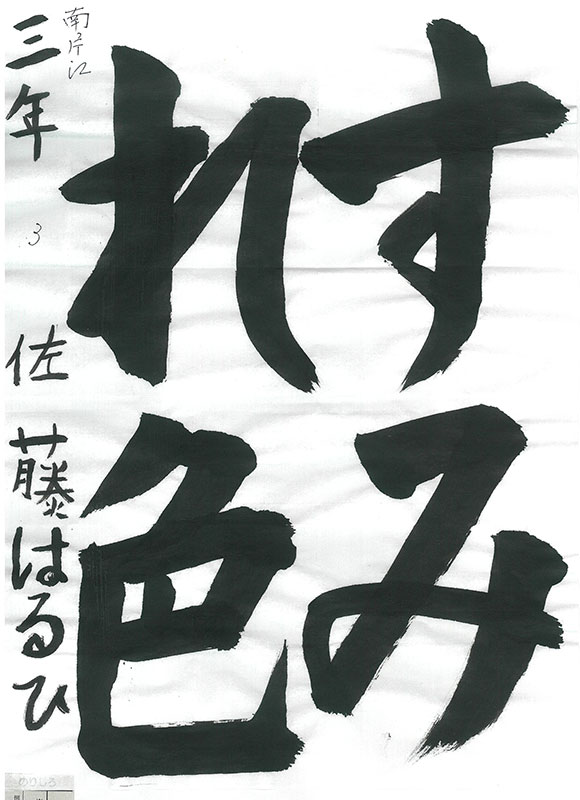 すみ
れ色
南片江
三年
3
佐藤はるひ
のりしろ